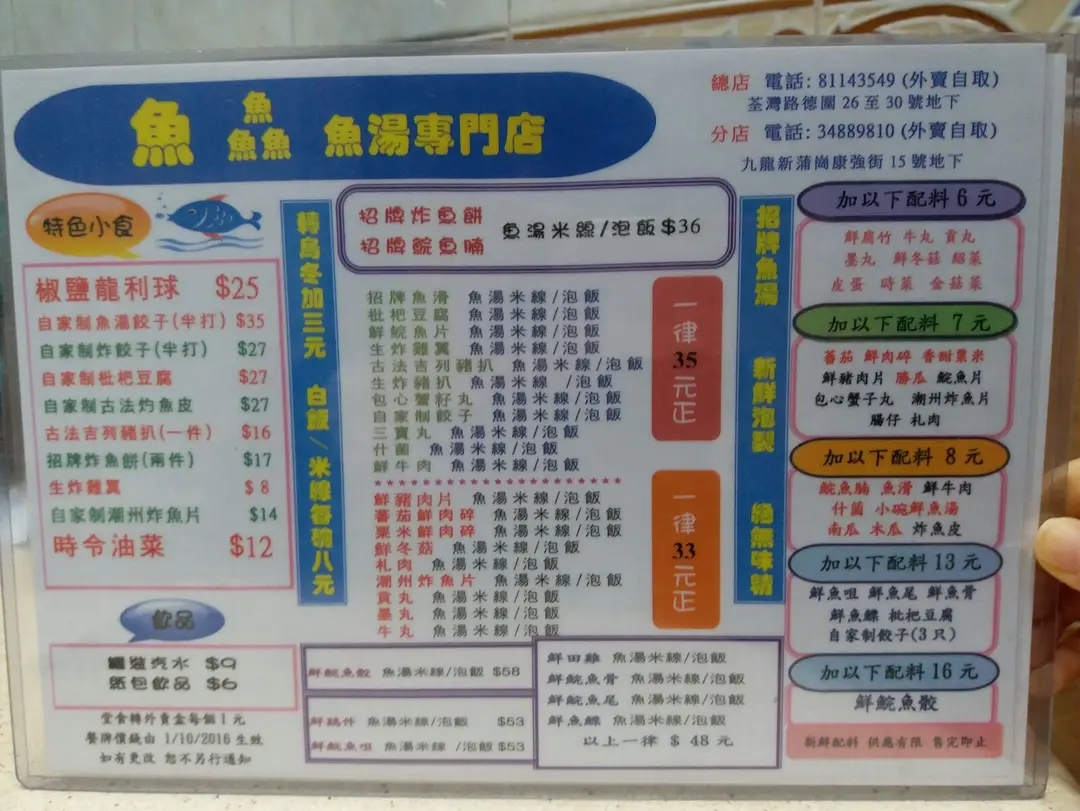 魚 魚魚魚 魚湯專門店
總店 電話: 81143549 (外賣自取)
荃灣路德圍 26 至 30 號地下
分店 電話: 34889810 (外賣自取)
九龍新蒲崗康強街 15 號地下
特色小食
椒鹽龍利球 $25
自家制魚湯餃子(半打) $35
自家制炸餃子(半打) $27
自家制枇杷豆腐 $27
自家制古法灼魚皮 $27
古法吉列豬扒(一件) $16
招牌炸魚餅(兩件) $17
生炸雞翼 $ 8
自家制潮州炸魚片 $14
時令油菜 $12
飲品
罐裝汽水 $9
紙包飲品 $6
堂食轉外賣盒每個 1 元
餐牌價錢由 1/10/2016 生效
如有更改 恕不另行通知
轉烏冬加三元 白飯/米線每碗八元
招牌炸魚餅
招牌鯇魚腩
魚湯米線/泡飯$36
招牌魚滑 魚湯米線/泡飯
枇杷豆腐 魚湯米線/泡飯
鮮鯇魚片 魚湯米線/泡飯
生炸雞翼 魚湯米線/泡飯
古法吉列豬扒 魚湯米線/泡飯
生炸豬扒 魚湯米線 /泡飯
包心蟹籽丸 魚湯米線/泡飯
自家制餃子 魚湯米線/泡飯
三寶丸 魚湯米線/泡飯
什菌 魚湯米線/泡飯
鮮牛肉 魚湯米線/泡飯
一律35元正
鮮豬肉片 魚湯米線/泡飯
蕃茄鮮肉碎 魚湯米線/泡飯
粟米鮮肉碎 魚湯米線/泡飯
鮮冬菇 魚湯米線/泡飯
札肉 魚湯米線/泡飯
潮州炸魚片 魚湯米線/泡飯
貢丸 魚湯米線/泡飯
墨丸 魚湯米線/泡飯
牛丸 魚湯米線/泡飯
一律33元正
鮮鯇魚骹 魚湯米線/泡飯 $58
鮮鷄件 魚湯米線/泡飯 $53
鮮鯇魚咀 魚湯米線 /泡飯 $53
鮮田雞 魚湯米線/泡飯
鮮鯇魚骨 魚湯米線/泡飯
鮮鯇魚尾 魚湯米線/泡飯
鮮魚鰾 魚湯米線/泡飯
以上一律 $ 48 元
招牌魚湯 新鮮泡製 絕無味精
加以下配料 6 元
鮮腐竹 牛丸 貢丸
墨丸 鮮冬菇 紹菜
皮蛋 時菜 金菇菜
加以下配料 7 元
蕃茄 鮮肉碎 香甜粟米
鮮豬肉片 勝瓜 鯇魚片
包心蟹子丸 潮州炸魚片
腸仔 札肉
加以下配料 8 元
鯇魚腩 魚滑 鮮牛肉
什菌 小碗鮮魚湯
南瓜 木瓜 炸魚皮
加以下配料 13 元
鮮魚咀 鮮魚尾 鮮魚骨
鮮魚鰾 枇杷豆腐
自家制餃子(3 只)
加以下配料 16 元
鮮鯇魚骹
新鮮配料 供應有限 售完即止